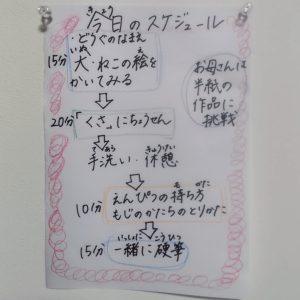 今日のスケジュール
きょう
・どうぐのなまえ
いぬ
15分 犬・ねこの絵を
え
かいてみる
20分 「くさ」にちょうせん
手洗い・休憩
てあら きゅうけい
10分 えんぴつの持ち方
も かた
もじのかたちのとりかた
15分 一緒に硬筆
いっしょに こうひつ
お母さんは
半紙の
作品に
挑戦